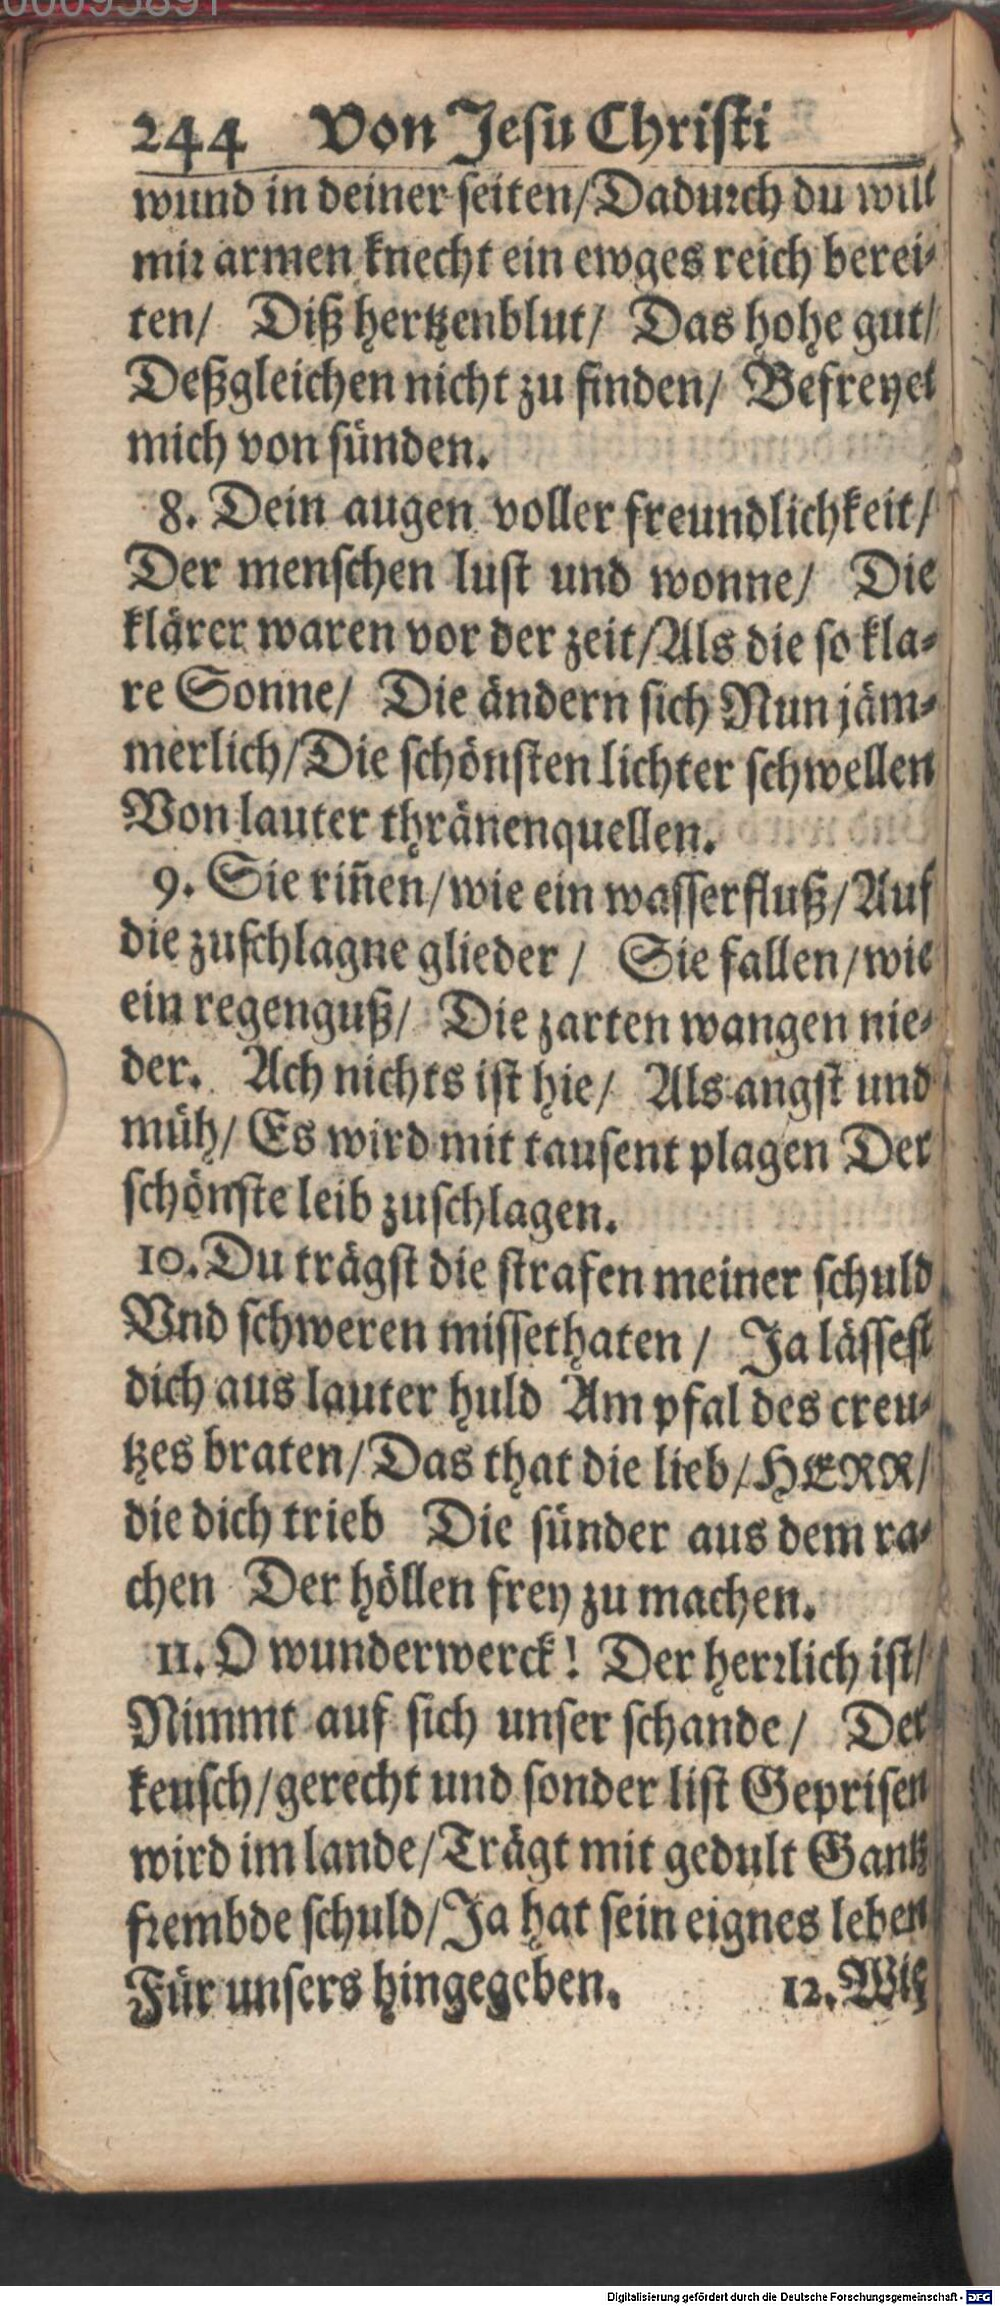 00095891
244 Von Jesu Christi
wund in deiner seiten/Dadurch du will
mir armen knecht ein ewges reich berei-
ten/ Diß hertzenblut/ Das hohe gut/
Deßgleichen nicht zu finden/ Befreyet
mich von sünden.
8. Dein augen voller freundlichkeit/
Der menschen lust und wonne/ Die
klärer waren vor der zeit/Als die so kla-
re Sonne/ Die ändern sich Nun jäm-
merlich/Die schönsten lichter schwellen
Von lauter thränenquellen.
9. Sie riñen/wie ein wasserfluß/Auf
die zuschlagne glieder/ Sie fallen/wie
ein regenguß/ Die zarten wangen nie-
der. Ach nichts ist hie/ Als angst und
müh/Es wird mit tausent plagen Der
schönste leib zuschlagen.
10. Du trägst die strafen meiner schuld
Vnd schweren missethaten/ Ja lässest
dich aus lauter huld Am pfal des creu-
tzes braten/Das that die lieb/HERR/
die dich trieb Die sünder aus dem ra-
chen Der höllen frey zu machen.
11. O wunderwerck! Der herrlich ist/
Nimmt auf sich unser schande/ Der
keusch/gerecht und sonder list Geprisen
wird im lande/Trägt mit gedult Gantz
frembde schuld/Ja hat sein eignes leben
Für unsers hingegeben. 12. Wie
Digitalisierung gefördert durch die Deutsche Forschungsgemeinschaft - DFG